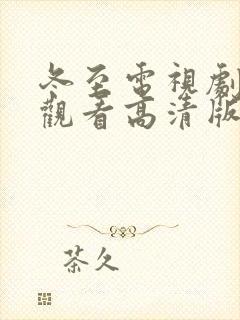 冬至電視劇
觀看高清版
茶久